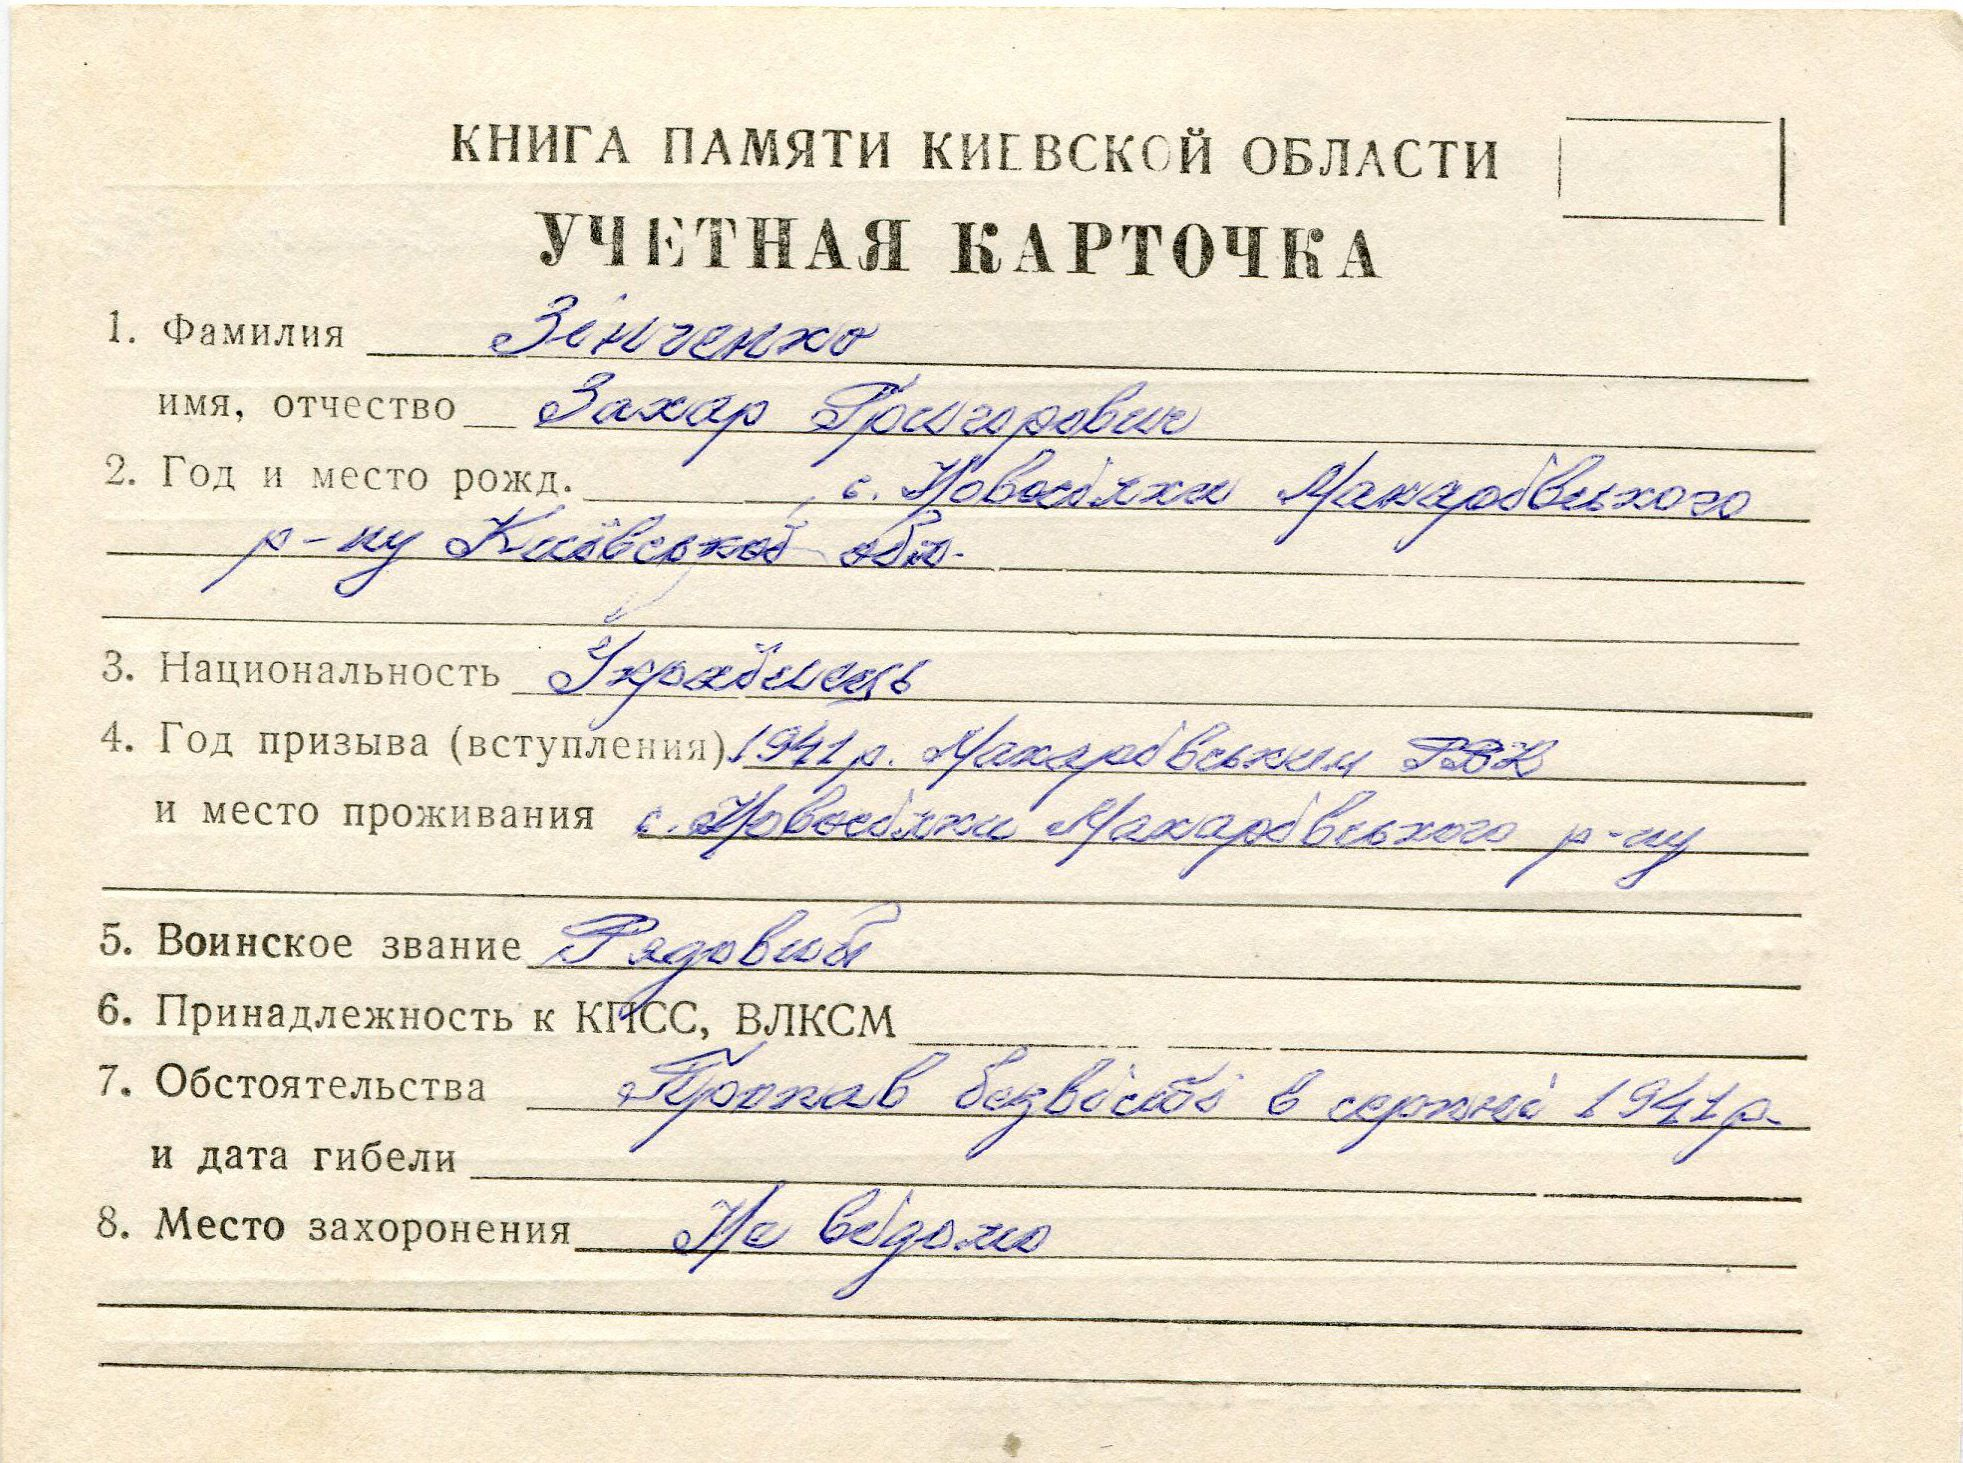 КНИГА ПАМЯТИ КИЕВСКОЙ ОБЛАСТИ
УЧЕТНАЯ КАРТОЧКА
1. Фамилия Зінченко
имя, отчество Захар Григорович
2. Год и место рожд. , с. Новосілки Макарівського
р-ну Київської обл.
3. Национальность Українець
4. Год призыва (вступления) 1941 р. Макарівським РВК
и место проживания с. Новосілки Макарівського р-ну
5. Воинское звание Рядовий
6. Принадлежность к КПСС, ВЛКСМ
7. Обстоятельства Пропав безвісті в серпні 1941 р.
и дата гибели
8. Место захоронения Не відомо